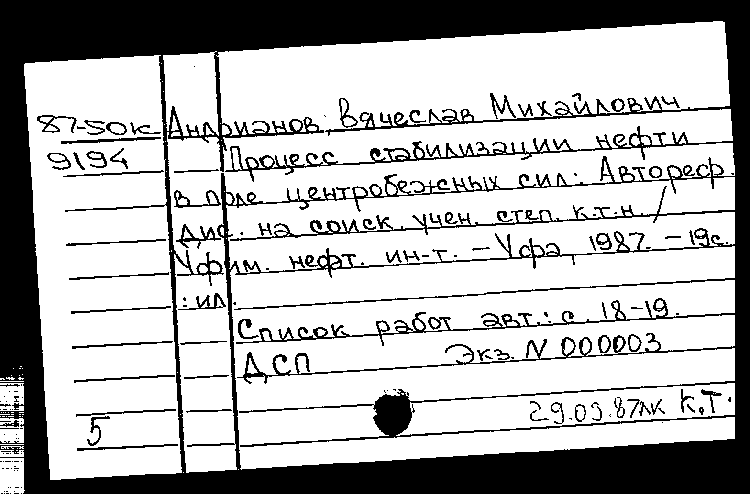 87-50к Андрианов, Вячеслав Михайлович
9194 Процесс стабилизации нефти
в поле центробежных сил: Автореф.
дис. на соиск. учен. степ. к.т.н. /
Уфим. нефт. ин-т. - Уфа, 1987. - 19с.
: ил.
Список работ авт.: с. 18-19.
ДСП Экз. N 000003
5 29.09.87лк К.Т.